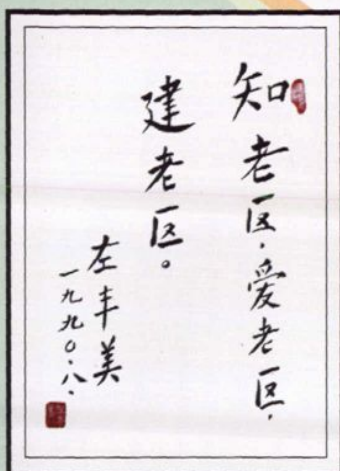 知老区，爱老区，
建老区。
左丰美
一九九〇.八.